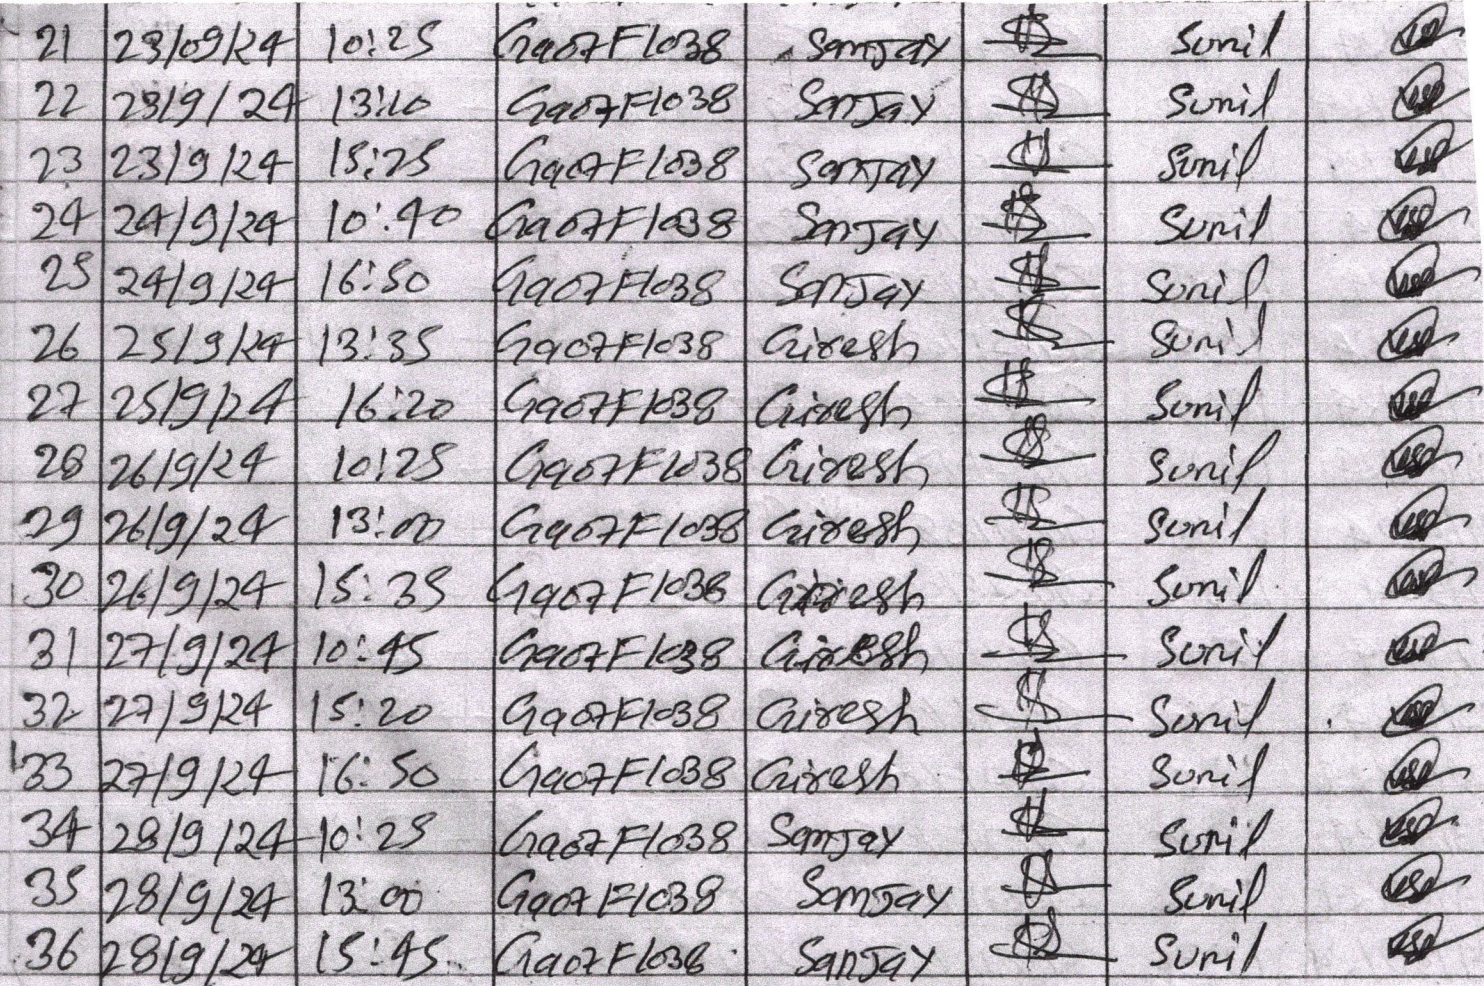 21 23/09/24 10:25 Ga07F1038 Sanjay Sunil
22 23/9/24 13:10 Ga07F1038 Sanjay Sunil
23 23/9/24 15:25 Ga07F1038 Sanjay Sunil
24 24/9/24 10:40 Ga07F1038 Sanjay Sunil
25 24/9/24 16:50 Ga07F1038 Sanjay Sunil
26 25/9/24 13:35 Ga07F1038 Giresh Sunil
27 25/9/24 16:20 Ga07F1038 Giresh Sunil
28 26/9/24 10:25 Ga07F1038 Giresh Sunil
29 26/9/24 13:00 Ga07F1038 Giresh Sunil
30 26/9/24 15:35 Ga07F1038 Giresh Sunil
31 27/9/24 10:45 Ga07F1038 Giresh Sunil
32 27/9/24 15:20 Ga07F1038 Giresh Sunil
33 27/9/24 16:50 Ga07F1038 Giresh Sunil
34 28/9/24 10:25 Ga07F1038 Sanjay Sunil
35 28/9/24 13:00 Ga07F1038 Sanjay Sunil
36 28/9/24 15:45 Ga07F1038 Sanjay Sunil